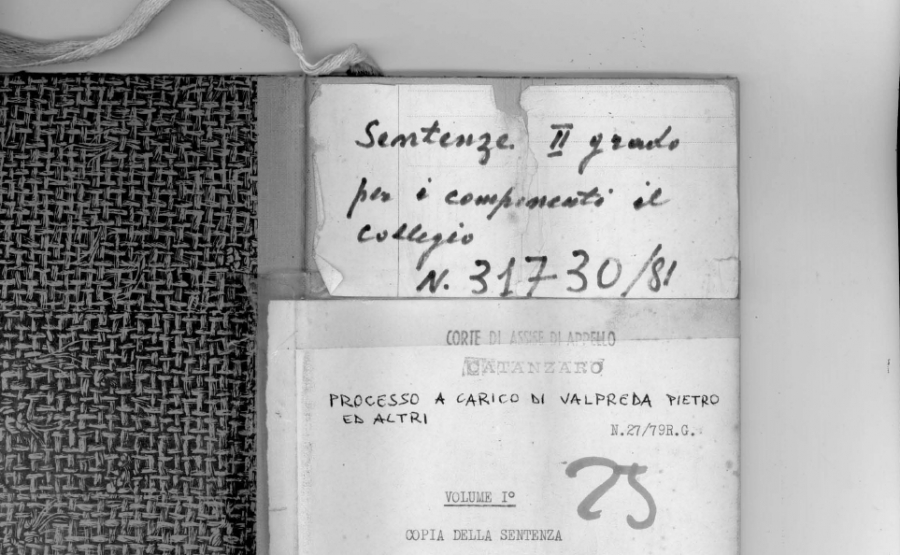 Sentenze II grado
per i componenti il
collegio
N. 31730/81
CORTE DI ASSISE DI APPELLO
CATANZARO
PROCESSO A CARICO DI VALPREDA PIETRO
ED ALTRI
N.27/79R.G.
25
VOLUME I°
COPIA DELLA SENTENZA